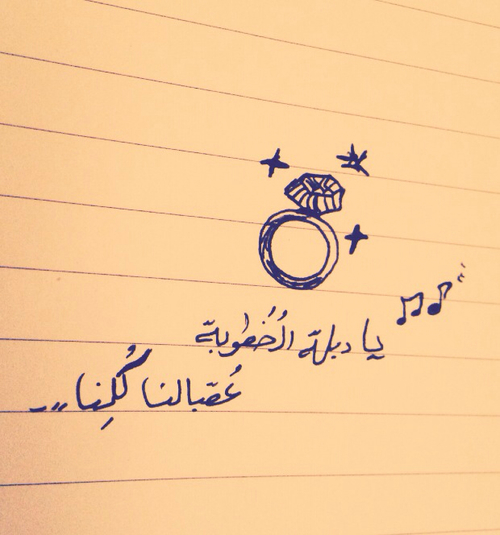 يا دبلة الخُطوبة
عُقبالنا كُلِنا ...